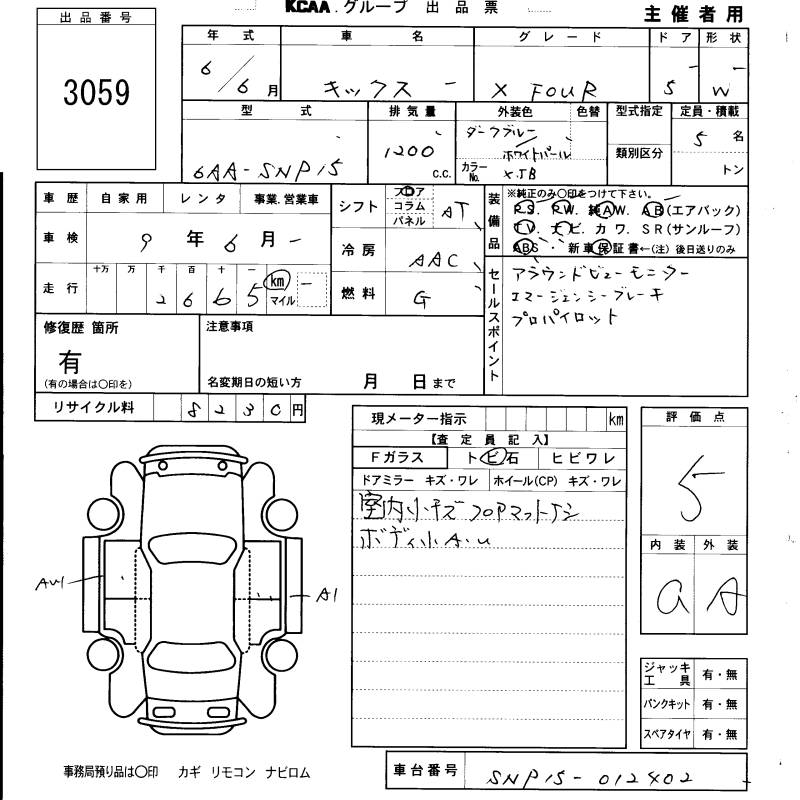 KCAA.グループ 出品票
主催者用
出品番号
3059
年式 車名 グレード ドア 形状
6/6月 キックス X FOUR 5 W
型式 排気量 外装色 色替 型式指定 定員・積載
6AA-SNP15 1200 c.c. ダークブルー ホワイトパール 類別区分 5名
カラーNo. XJB トン
車歴 自家用 レンタ 事業.営業車
車検 9年6月
走行 十万 万 千 百 十 一
2665 km マイル
シフト フロア コラム パネル AT
冷房 AAC
燃料 G
装備品 ※純正のみ○印をつけて下さい。
P.S. P.W. 純AW. A.B(エアバック)
T.V. ナビ. カワ. SR(サンルーフ)
ABS. 新車保証書←(注)後日送りのみ
セールスポイント
アラウンドビューモニター
エマージェンシーブレーキ
プロパイロット
修復歴 箇所
有
(有の場合は○印を)
注意事項
名変期日の短い方 月 日まで
リサイクル料 8230円
現メーター指示 km
【査定員記入】
Fガラス トビ石 ヒビワレ
ドアミラー キズ・ワレ ホイール(CP) キズ・ワレ
室内小キズ フロアマットナシ
ボディ小A.U
評価点
5
内装 外装
a A
AU1
A1
ジャッキ工具 有・無
パンクキット 有・無
スペアタイヤ 有・無
事務局預り品は○印 カギ リモコン ナビロム
車台番号 SNP15-012402